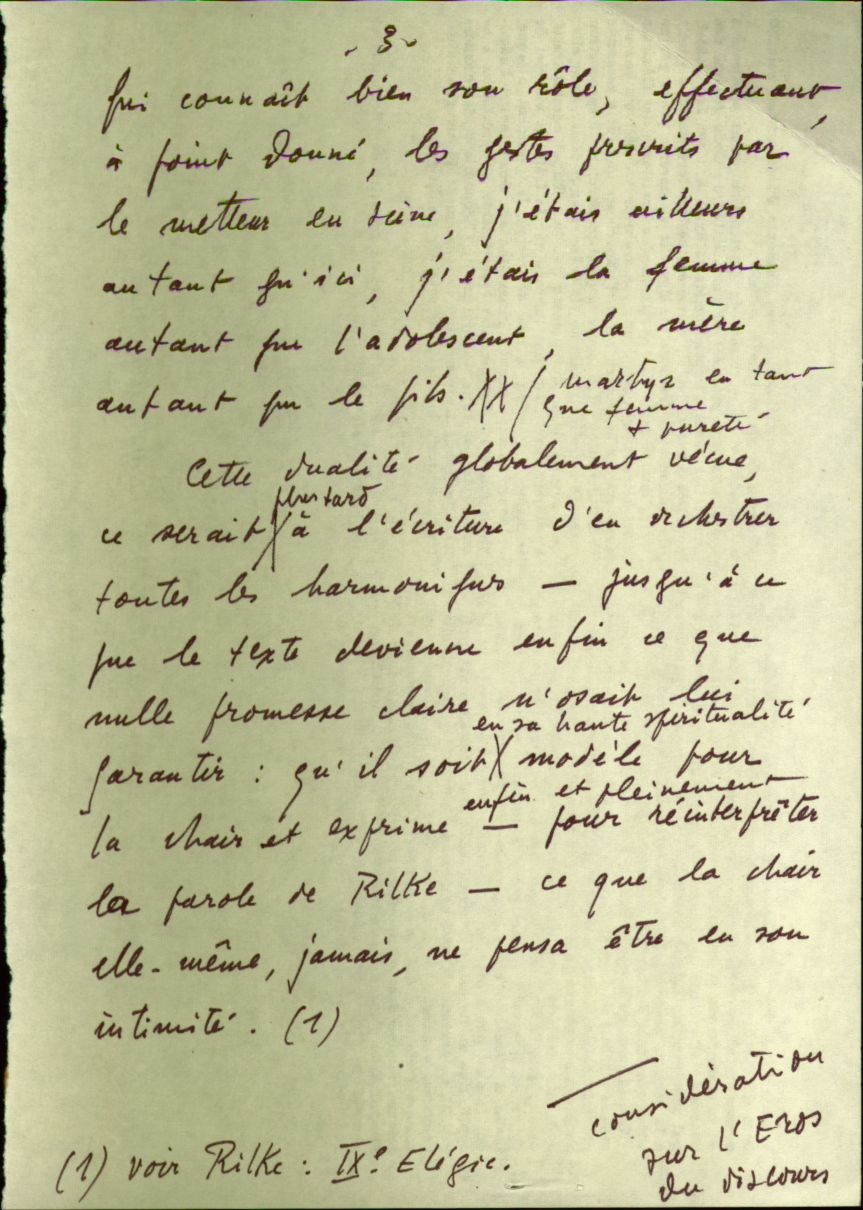 - 3 -
qui connaît bien son rôle, effectuant,
à point donné, les gestes prescrits par
le metteur en scène, j'étais ailleurs
autant qu'ici, j'étais la femme
autant que l'adolescent, la mère
autant que le fils. XX / martyr en tant
que femme
+ pureté
Cette dualité globalement vécue,
plus tard
ce serait X à l'écriture d'en orchestrer
toutes les harmoniques — jusqu'à ce
que le texte devienne enfin ce que
nulle promesse claire n'osait lui
en sa haute spiritualité
garantir : qu'il soit X modèle pour
enfin et pleinement
la chair et exprime — pour réinterpréter
la parole de Rilke — ce que la chair
elle-même, jamais, ne pensa être en son
intimité. (1)
considération
sur l'Eros
du discours
(1) voir Rilke : IXe Elégie.